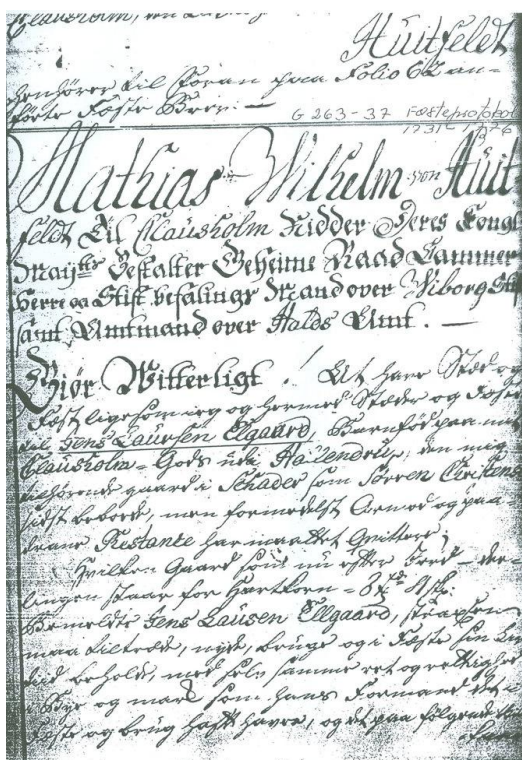 Clausholm, den
Huitfeldt
henhører til foran paa Folio 62 an-
førte Fæste Brev. —
G 263-37 Fæsteprotokol
1731 1376
Mathias Wilhelm von Huit
feldt Til Clausholm Ridder Deres Kongl
May:tts Bestalter Geheime Raad Cammer
Herre oc Stift befalings Mand over Wiborg Stift
samt Amtmand over Halds Amt. —
Giør Witterligt ! At have Stæd og
Fæst ligesom ieg og hermed Stæder og Fæster
til Jens Laursen Ellgaard, Barnefød paa mit
Clausholm Gods udi Hallendrup, den mig
tilhørende gaard i Schader som Sørren Christens
sidst beboede, men formedelst Armod og paa-
dragne Restantz har maattet qvittere;
Hvilken Gaard som nu efter Jord
lingen staar for Hartkorn =
Bemeldte Jens Lausen Ellgaard, strax
maa tiltræde, nyde, bruge og i Fæste sin Lifs
tid beholde, med selv samme ret og rettighed
i Bye og mark som hans Formand det i
Fæste og brug hafft haver, og det paa følgende